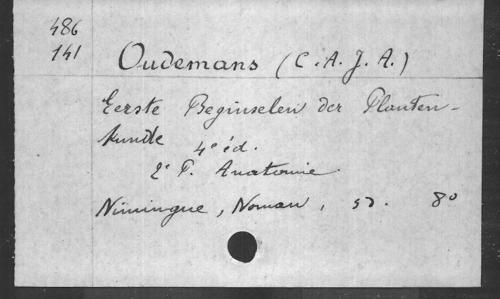 486
141
Oudemans (C. A. J. A.)
Eerste Beginselen der Planten-
kunde 4e éd.
2e P. Anatomie.
Nimingue, Noman, sd. 8o